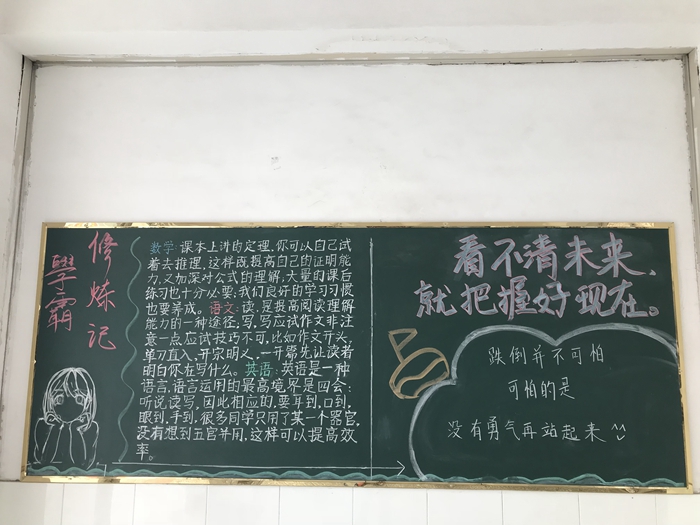 學霸
修炼记
数学:课本上讲的定理,你可以自己试
着去推理,这样既提高自己的证明能
力,又加深对公式的理解,大量的课后
练习也十分必要;我们良好的学习习惯
也要养成。语文:读,是提高阅读理解
能力的一种途径,写,写应试作文非注
意一点应试技巧不可,比如作文开头,
单刀直入,开宗明义,一开篇先让读着
明白你在写什么。英语:英语是一种
语言,语言运用的最高境界是四会:
听说读写,因此相应的,要耳到,口到,
眼到,手到,很多同学只用了某一个器官,
没有想到五官并用,这样可以提高效
率。
看不清未来、
就把握好现在。
跌倒并不可怕
可怕的是
没有勇气再站起来